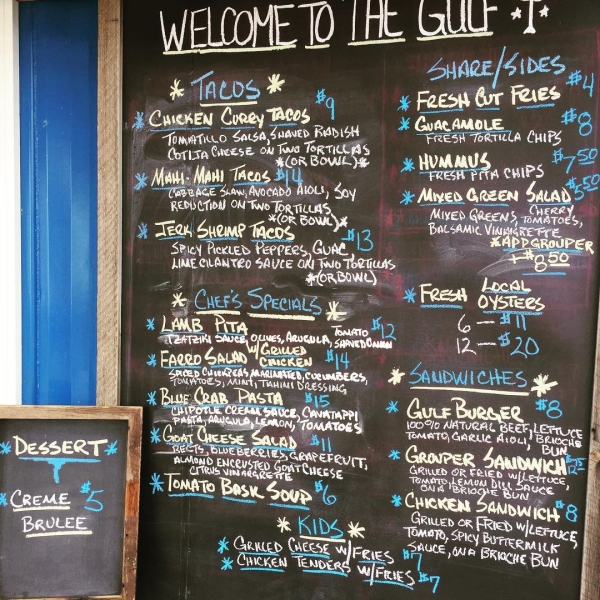 WELCOME TO THE GULF
TACOS
CHICKEN CURRY TACOS $9
TOMATILLO SALSA, SHAVED RADISH
COTIJA CHEESE ON TWO TORTILLAS
*(OR BOWL)*
MAHI-MAHI TACOS $14
CABBAGE SLAW, AVOCADO AIOLI, SOY
REDUCTION ON TWO TORTILLAS
*(OR BOWL)*
JERK SHRIMP TACOS $13
SPICY PICKLED PEPPERS, GUAC,
LIME CILANTRO SAUCE ON TWO TORTILLAS
*(OR BOWL)
CHEF'S SPECIALS
LAMB PITA $12
TZATZIKI SAUCE, OLIVES, ARUGULA, TOMATO, SHAVED ONION
FARRO SALAD W/GRILLED CHICKEN $14
SPICED CHICKPEAS, MARINATED, CUCUMBERS,
TOMATOES, MINT, TAHINI DRESSING
BLUE CRAB PASTA $15
CHIPOTLE CREAM SAUCE, CAVATAPPI
PASTA, ARUGULA, LEMON, TOMATOES
GOAT CHEESE SALAD $11
BEETS, BLUEBERRIES, GRAPEFRUIT,
ALMOND ENCRUSTED GOAT CHEESE
CITRUS VINAIGRETTE
TOMATO BASIL SOUP $6
KIDS
GRILLED CHEESE W/FRIES $7
CHICKEN TENDERS W/FRIES $7
SHARE/SIDES
FRESH CUT FRIES $4
GUACAMOLE $8
FRESH TORTILLA CHIPS
HUMMUS $7.50
FRESH PITA CHIPS
MIXED GREEN SALAD $5.50
MIXED GREENS, CHERRY TOMATOES,
BALSAMIC VINAIGRETTE
*ADD GROUPER
+ $8.50
FRESH LOCAL OYSTERS
6 — $11
12 — $20
SANDWICHES
GULF BURGER $8
100% NATURAL BEEF, LETTUCE
TOMATO, GARLIC AIOLI, BRIOCHE
BUN
GROUPER SANDWICH
GRILLED OR FRIED W/LETTUCE,
TOMATO, LEMON DILL SAUCE
ON A BRIOCHE BUN
CHICKEN SANDWICH $8
GRILLED OR FRIED W/LETTUCE,
TOMATO, SPICY BUTTERMILK
SAUCE, ON A BRIOCHE BUN
DESSERT
CREME $5
BRULEE